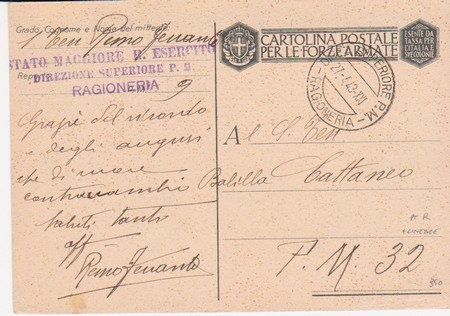 Grado, Cognome e Nome del mittente
S. Ten Remo
STATO MAGGIORE R. ESERCITO
DIREZIONE SUPERIORE P. M.
RAGIONERIA
9
Grazie del ricordo
e degli auguri
che di cuore
contracambio
Saluti tanti
aff
Remo
CARTOLINA POSTALE
PER LE FORZE ARMATE
ESENTE DA
TASSA PER
L'ITALIA E
SUE COLONIE
SUPERIORE P.M.
RAGIONERIA
21-1-43-XXI
Al S. Ten
Balilla Cattaneo
P. M. 32